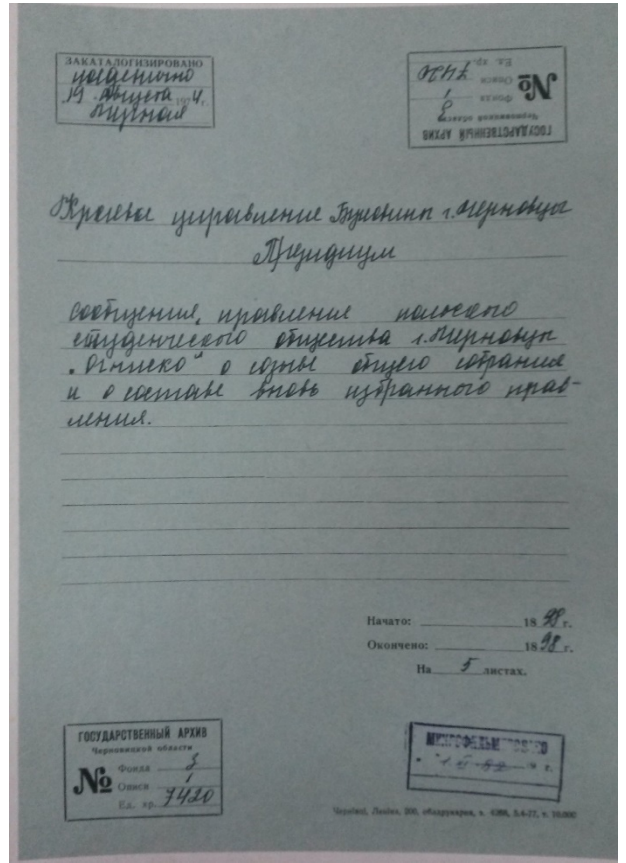 ЗАКАТАЛОГИЗИРОВАНО
19 августа 1974 г.
ГОСУДАРСТВЕННЫЙ АРХИВ
Черновицкой области
№
Фонда 3
Описи 1
Ед. хр. 7420
Краевое управление Буковины г. Черновцы
Президиум
Сообщения правления польского
студенческого общества г. Черновцы
"Огниско" о созыве общего собрания
и о составе вновь избранного прав-
ления.
Начато: 1898 г.
Окончено: 1898 г.
На 5 листах.
ГОСУДАРСТВЕННЫЙ АРХИВ
Черновицкой области
№
Фонда 3
Описи 1
Ед. хр. 7420
МИКРОФИЛЬМИРОВАНО
г.
Чернівці, Леніна, 200, облдрукарня, з. 4388, 3.4-77, т. 10.000